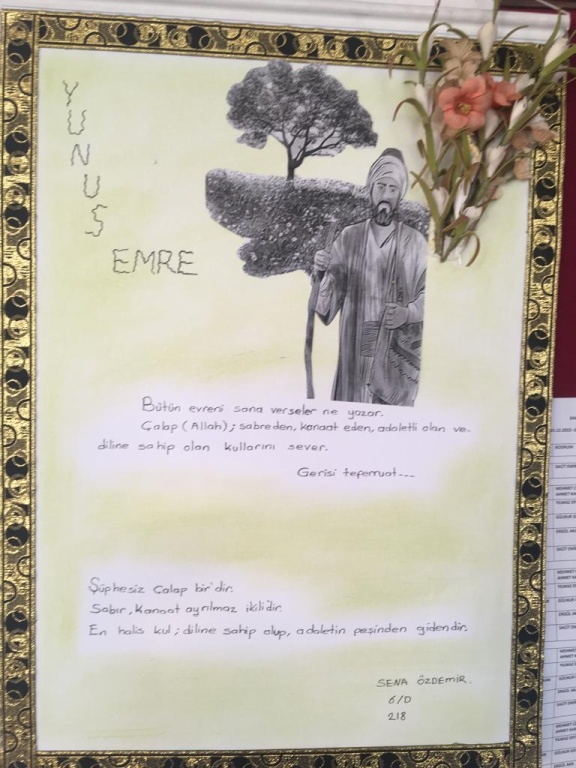 YUNUS
EMRE
Bütün evreni sana verseler ne yazar.
Çalap (Allah); sabreden, kanaat eden, adaletli olan ve-
diline sahip olan kullarını sever.
Gerisi teferruat...
Şüphesiz Çalap bir'dir.
Sabır, kanaat ayrılmaz ikilidir.
En halis kul; diline sahip olup, adaletin peşinden gidendir.
SENA ÖZDEMİR.
6/D
218